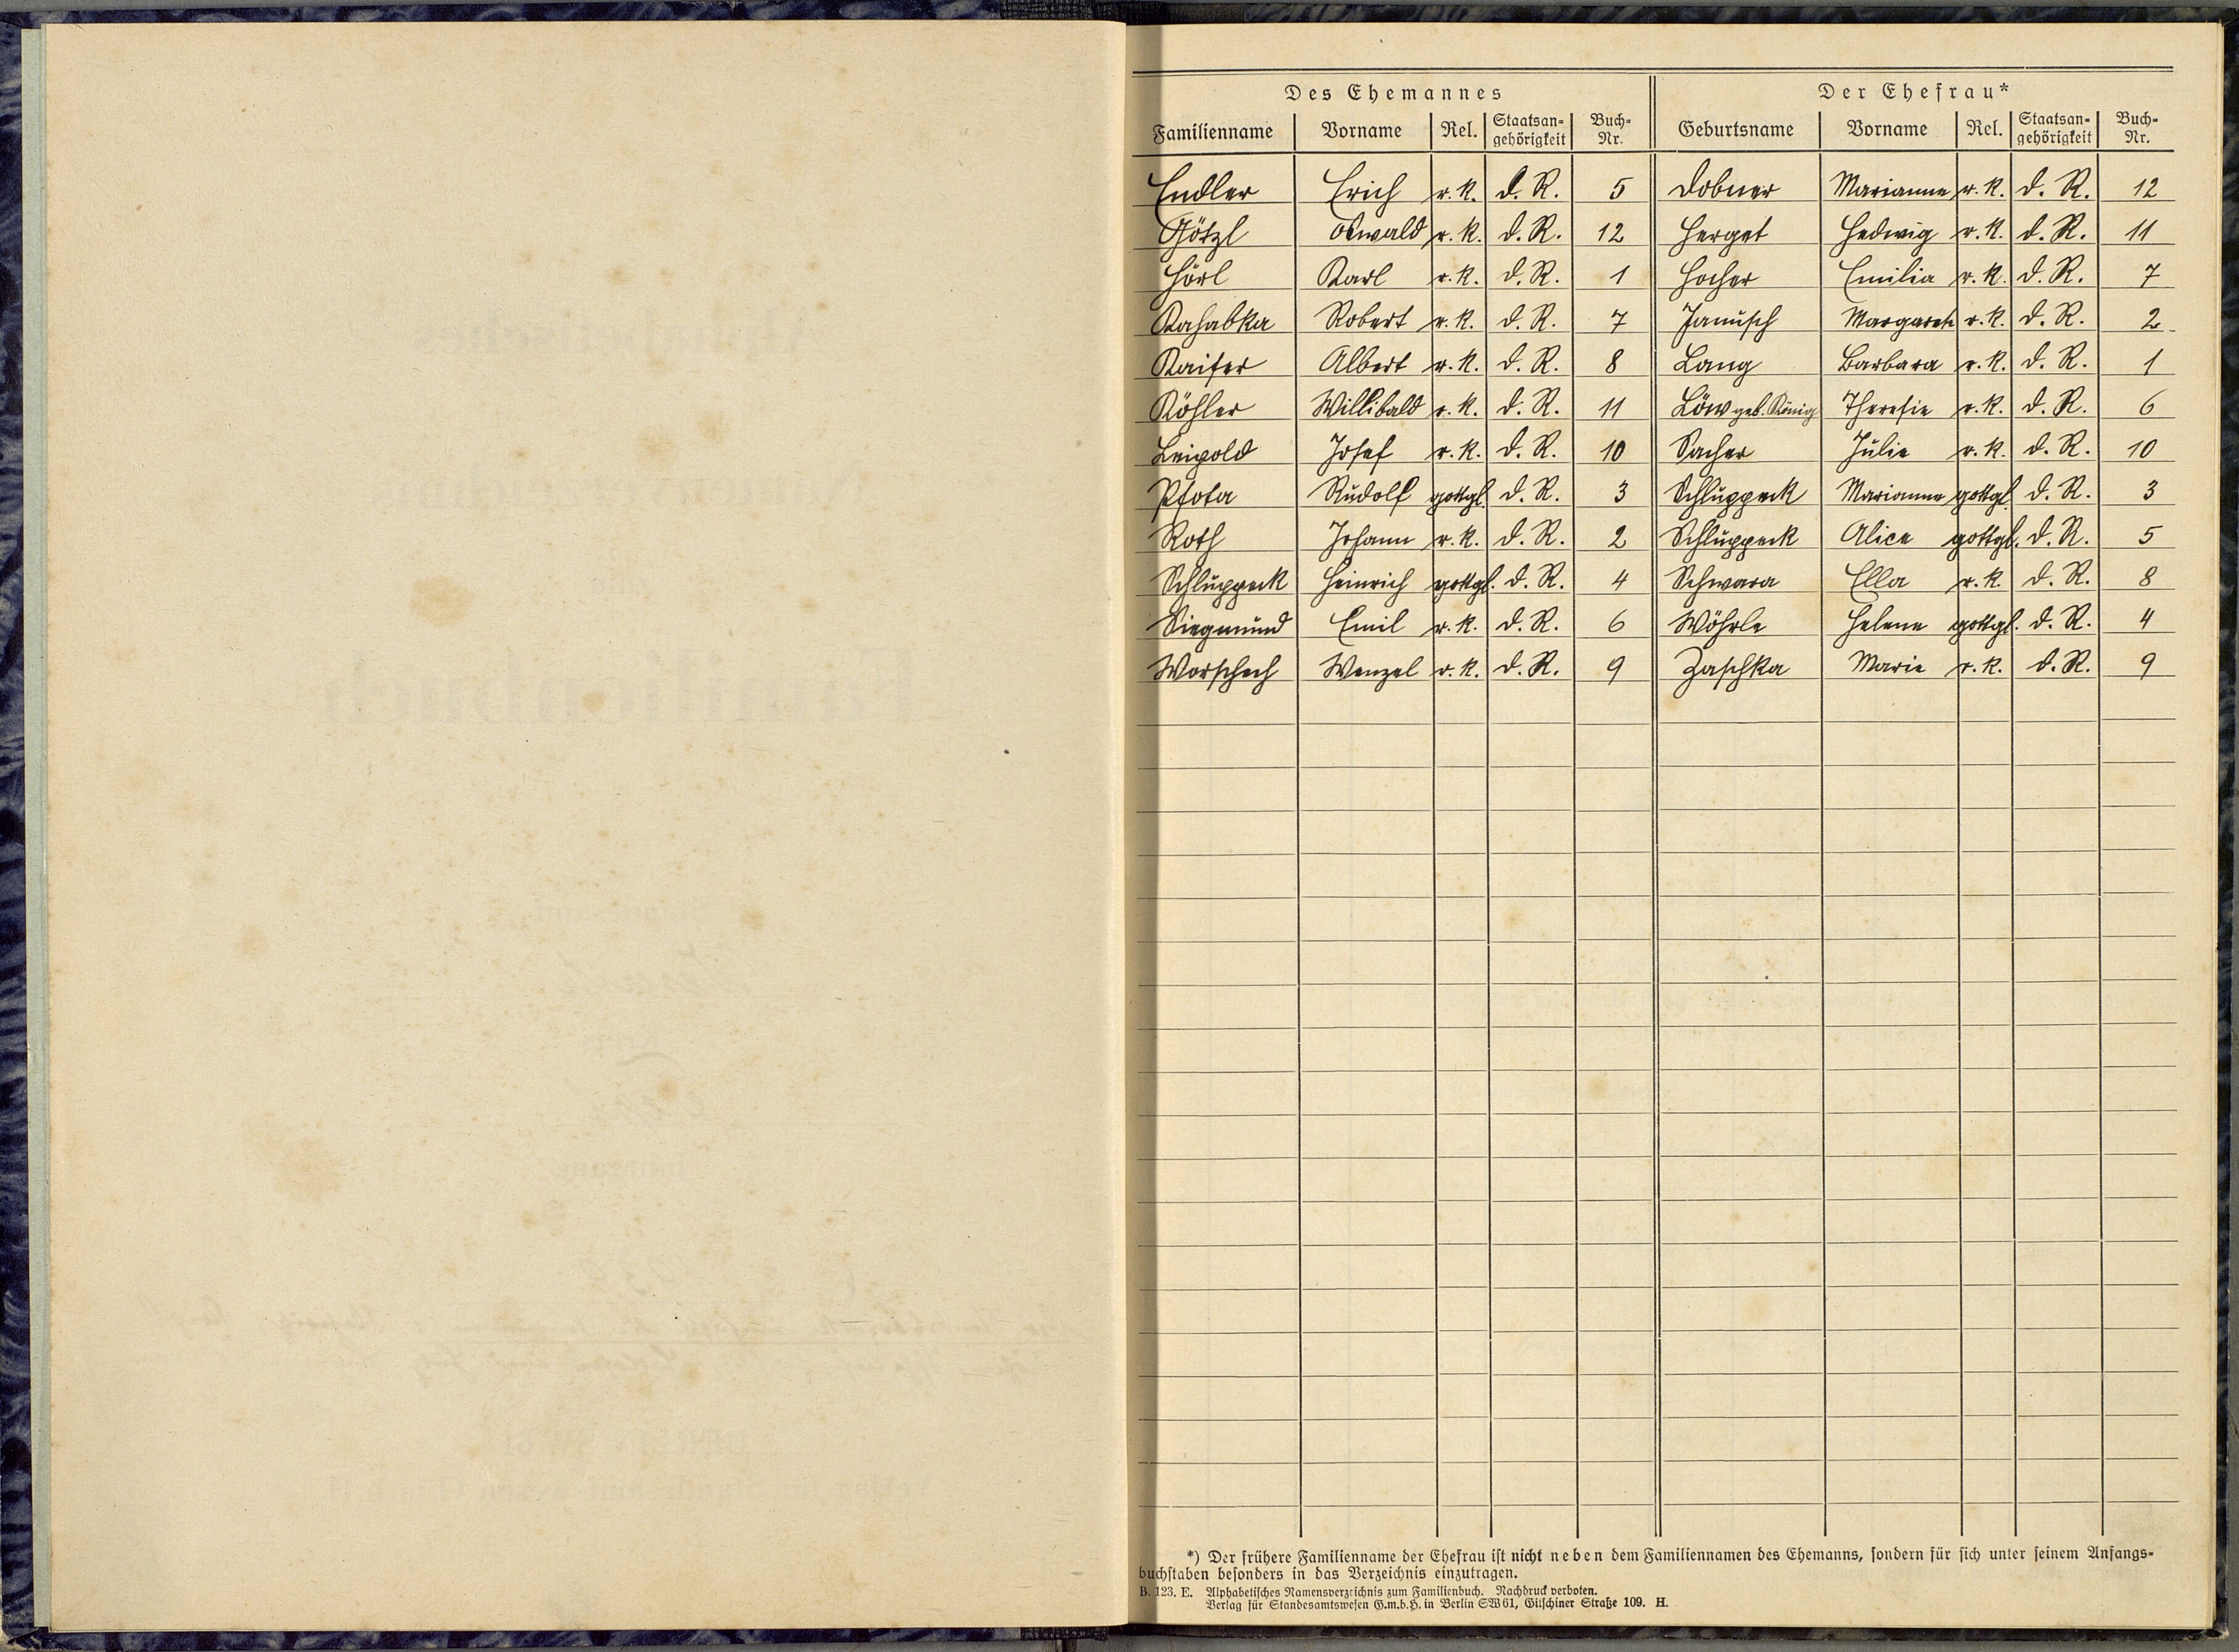 Des Ehemannes Der Ehefrau*
Familienname Vorname Rel. Staatsan-gehörigkeit Buch-Nr. Geburtsname Vorname Rel. Staatsan-gehörigkeit Buch-Nr.
Endler Erich r. k. d. R. 5 Dobner Marianne r. k. d. R. 12
Götzl Oswald r. k. d. R. 12 Herget Hedwig r. k. d. R. 11
Hörl Karl r. k. d. R. 1 Hocher Emilia r. k. d. R. 7
Kahabka Robert r. k. d. R. 7 Janusch Margarete r. k. d. R. 2
Kaiser Albert r. k. d. R. 8 Lang Barbara r. k. d. R. 1
Köhler Willibald r. k. d. R. 11 Löw geb. König Theresie r. k. d. R. 6
Leipold Josef r. k. d. R. 10 Sacher Julie r. k. d. R. 10
Pfota Rudolf gottgl. d. R. 3 Schluppeck Marianne gottgl. d. R. 3
Roth Johann r. k. d. R. 2 Schluppeck Alice gottgl. d. R. 5
Schluppeck Heinrich gottgl. d. R. 4 Schwara Ella r. k. d. R. 8
Siegmund Emil r. k. d. R. 6 Wöhrle Helene gottgl. d. R. 4
Worschech Wenzel r. k. d. R. 9 Zaschka Marie r. k. d. R. 9
*) Der frühere Familienname der Ehefrau ist nicht neben dem Familiennamen des Ehemanns, sondern für sich unter seinem Anfangs-
buchstaben besonders in das Verzeichnis einzutragen.
B. 123. E. Alphabetisches Namensverzeichnis zum Familienbuch. Nachdruck verboten.
Verlag für Standesamtswesen G.m.b.H. in Berlin SW 61, Gitschiner Straße 109. H.